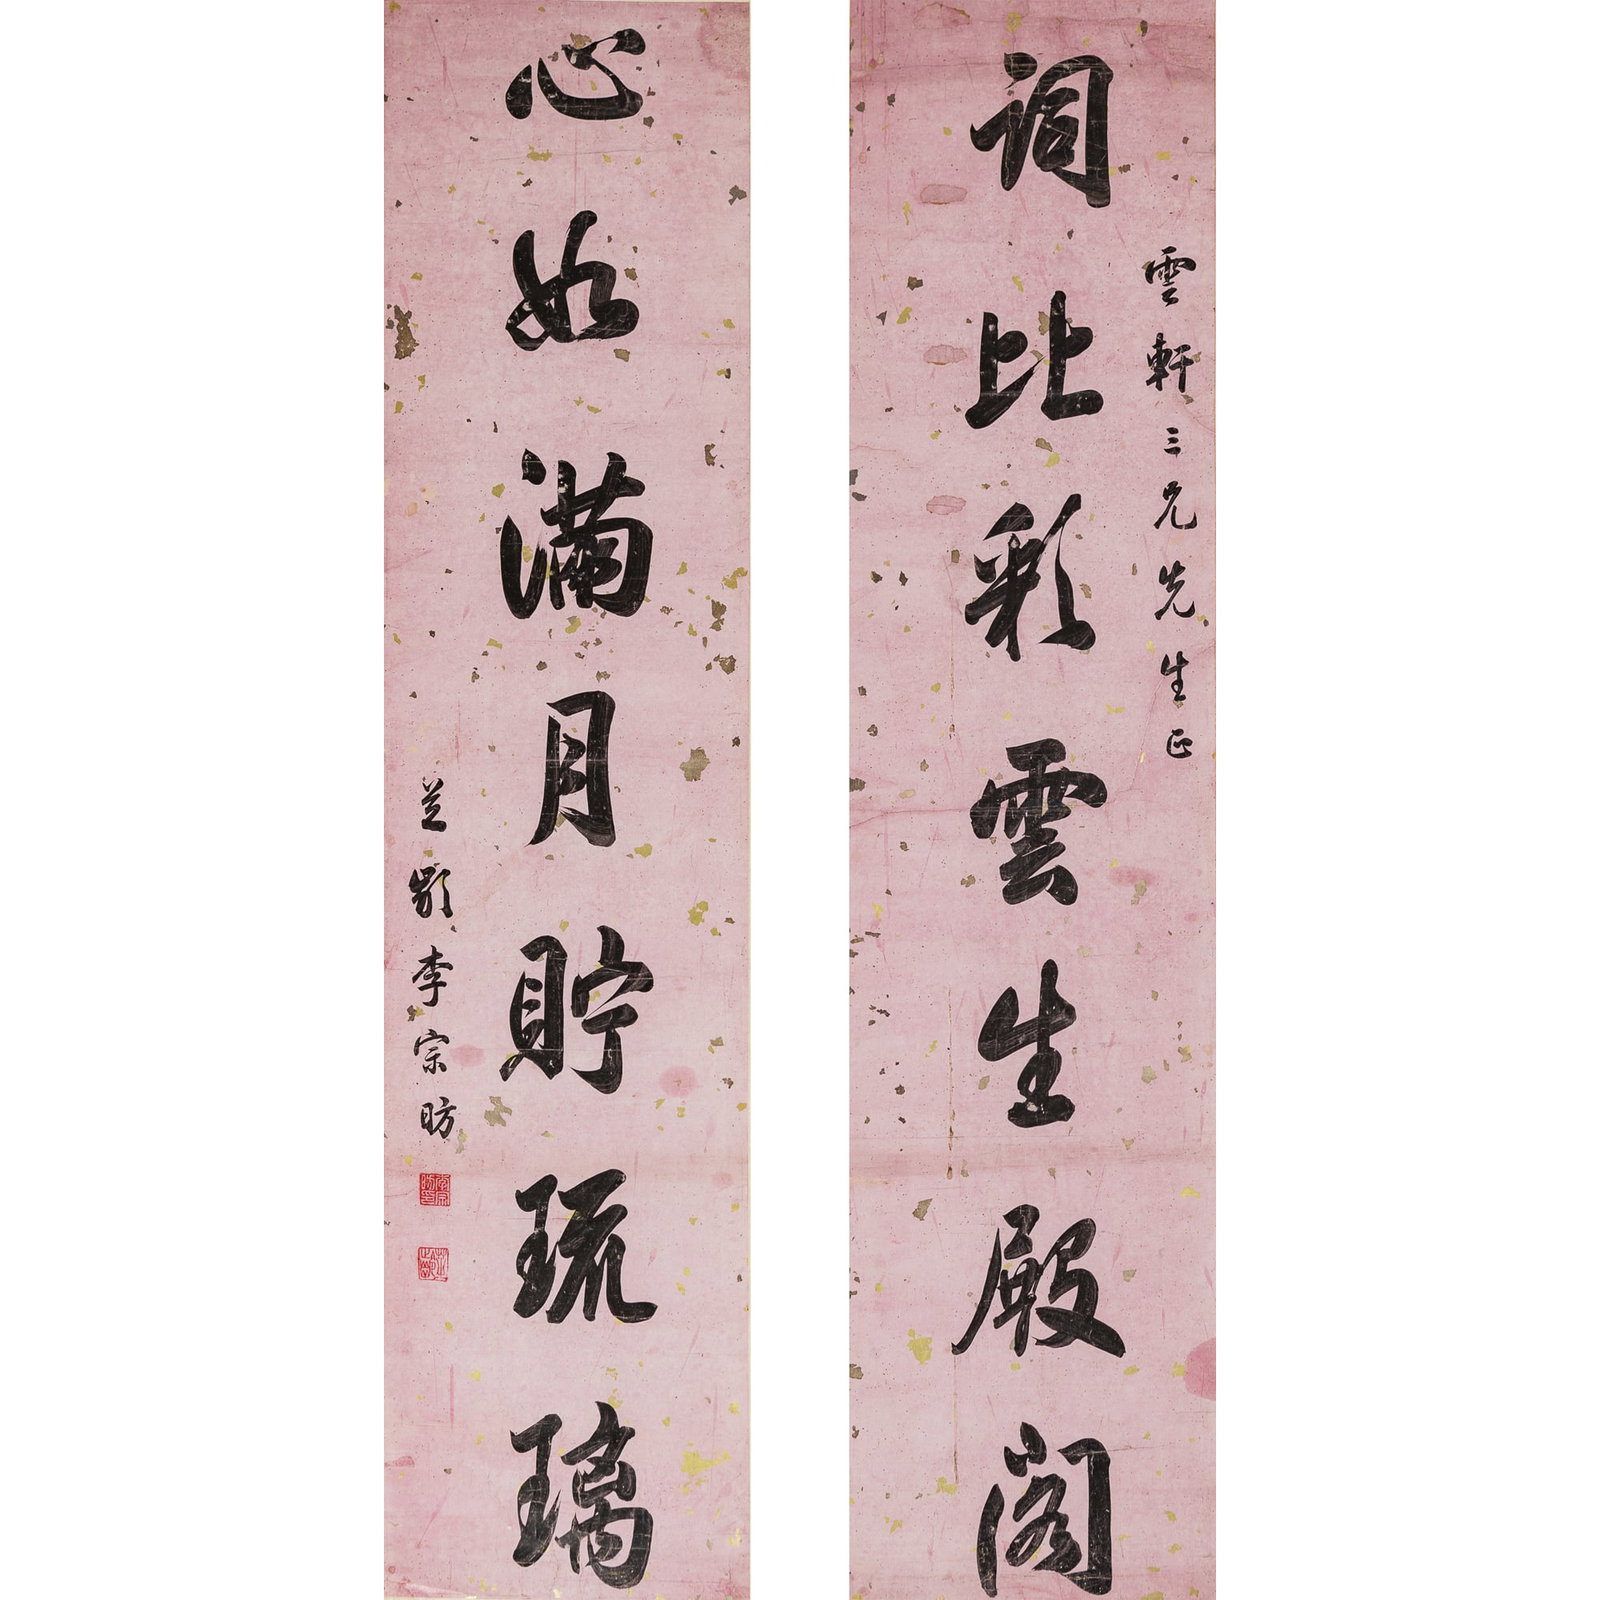 雲軒三兄先生正
詞比彩雲生殿閣
心如滿月貯琉璃
芝齡李宗昉